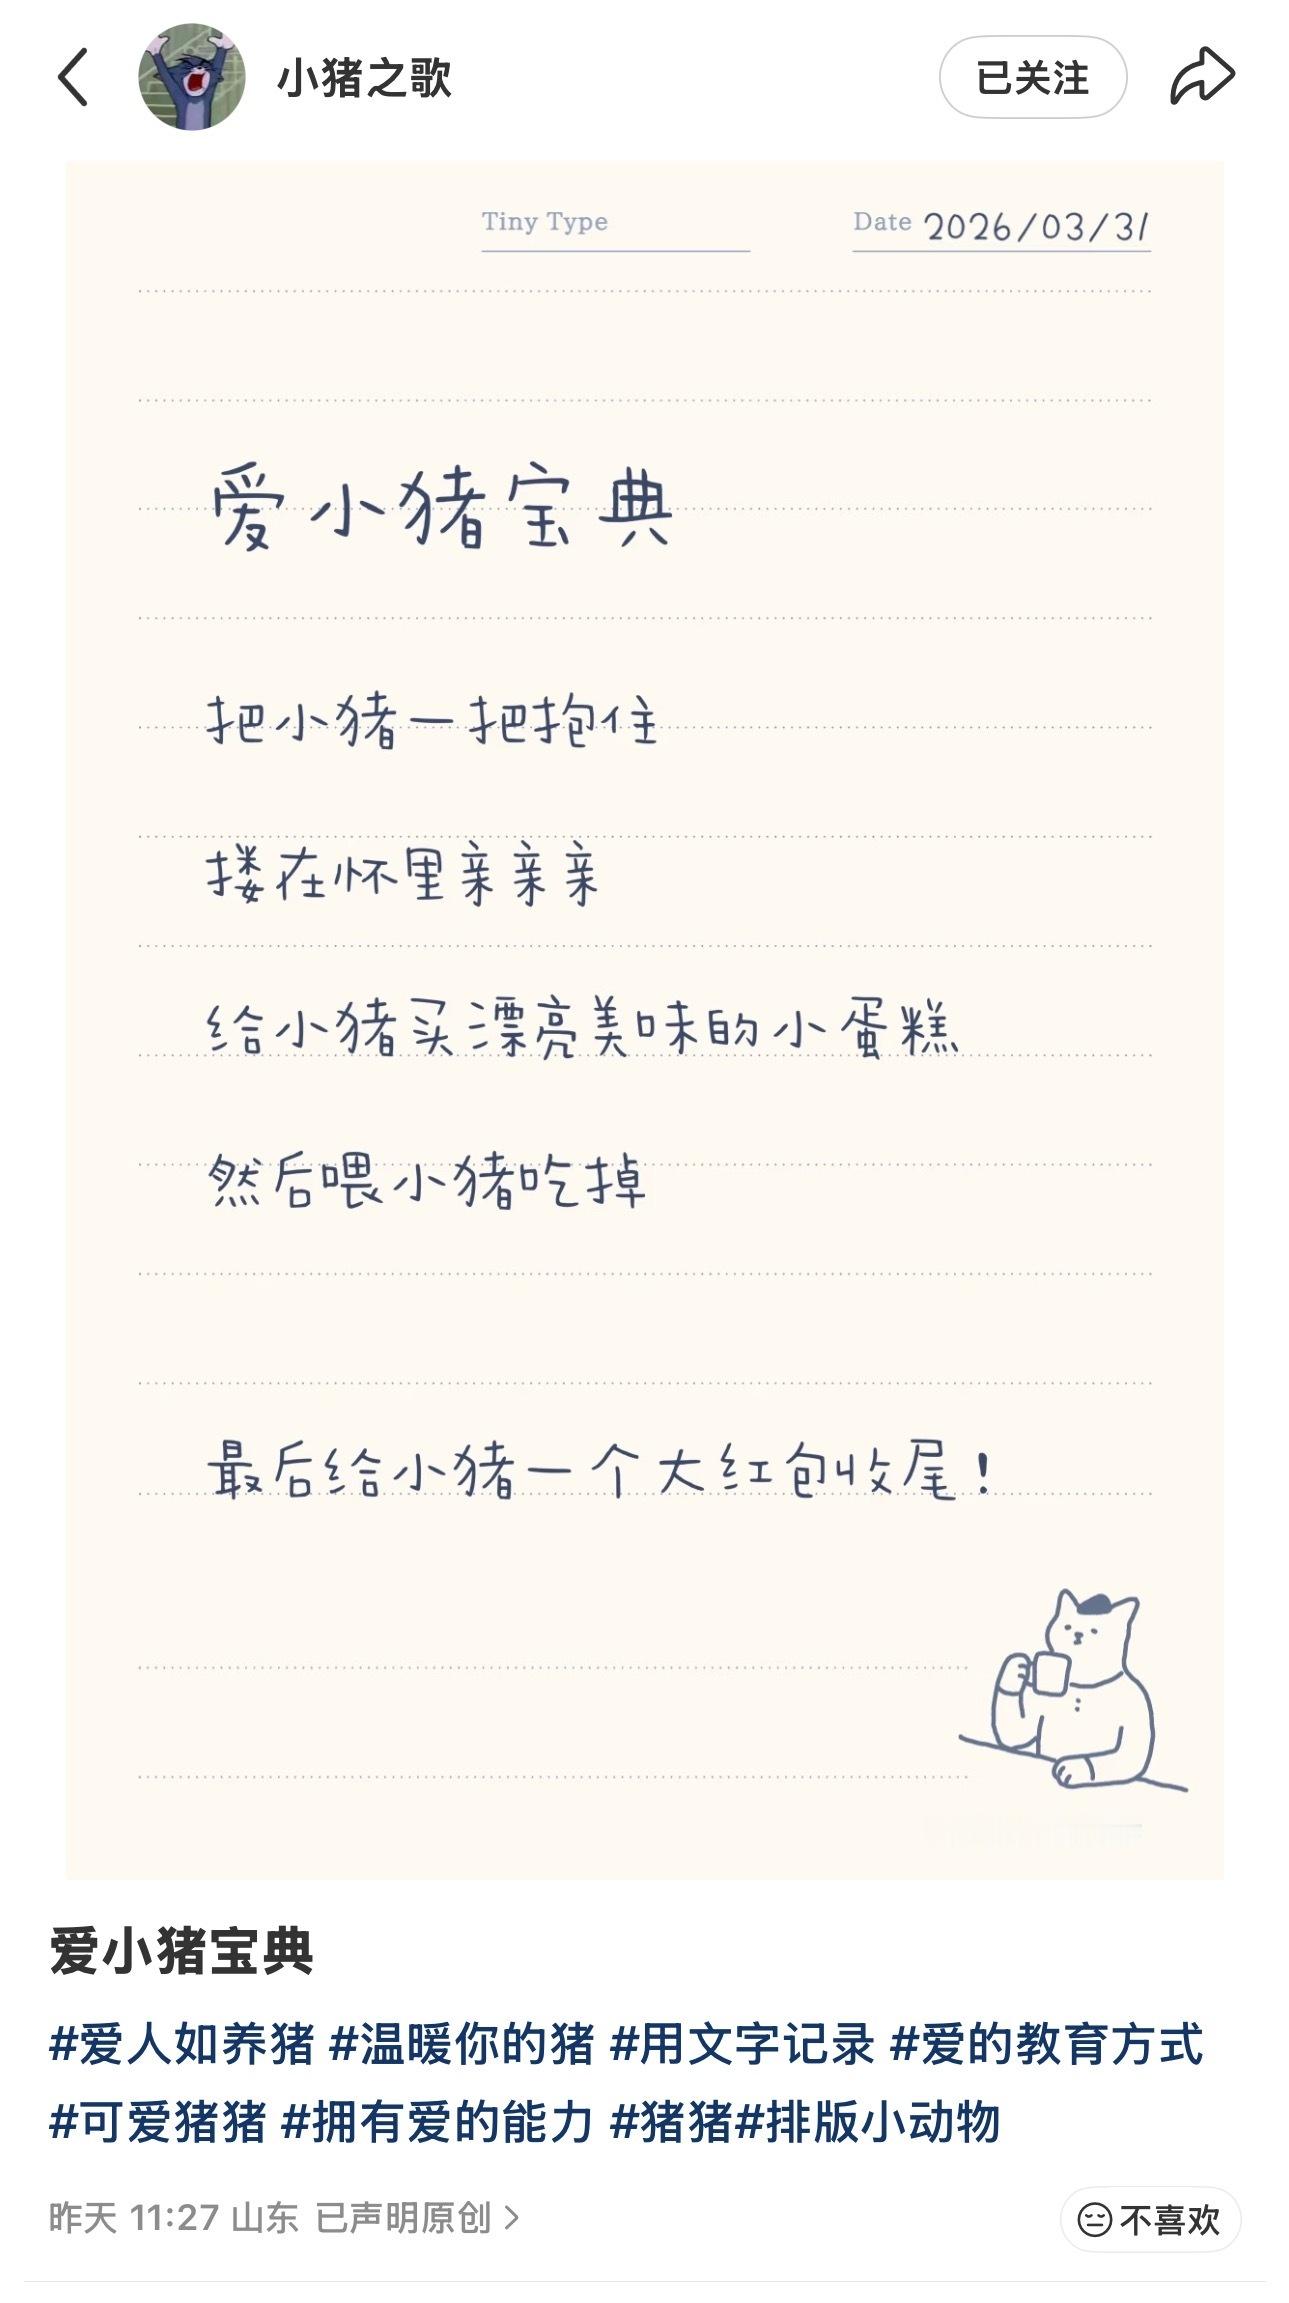 小猪之歌 已关注
Tiny Type Date 2026/03/31
爱小猪宝典
把小猪一把抱住
搂在怀里亲亲亲
给小猪买漂亮美味的小蛋糕
然后喂小猪吃掉
最后给小猪一个大红包收尾！
爱小猪宝典
#爱人如养猪 #温暖你的猪 #用文字记录 #爱的教育方式
#可爱猪猪 #拥有爱的能力 #猪猪#排版小动物
昨天 11:27 山东 已声明原创
不喜欢